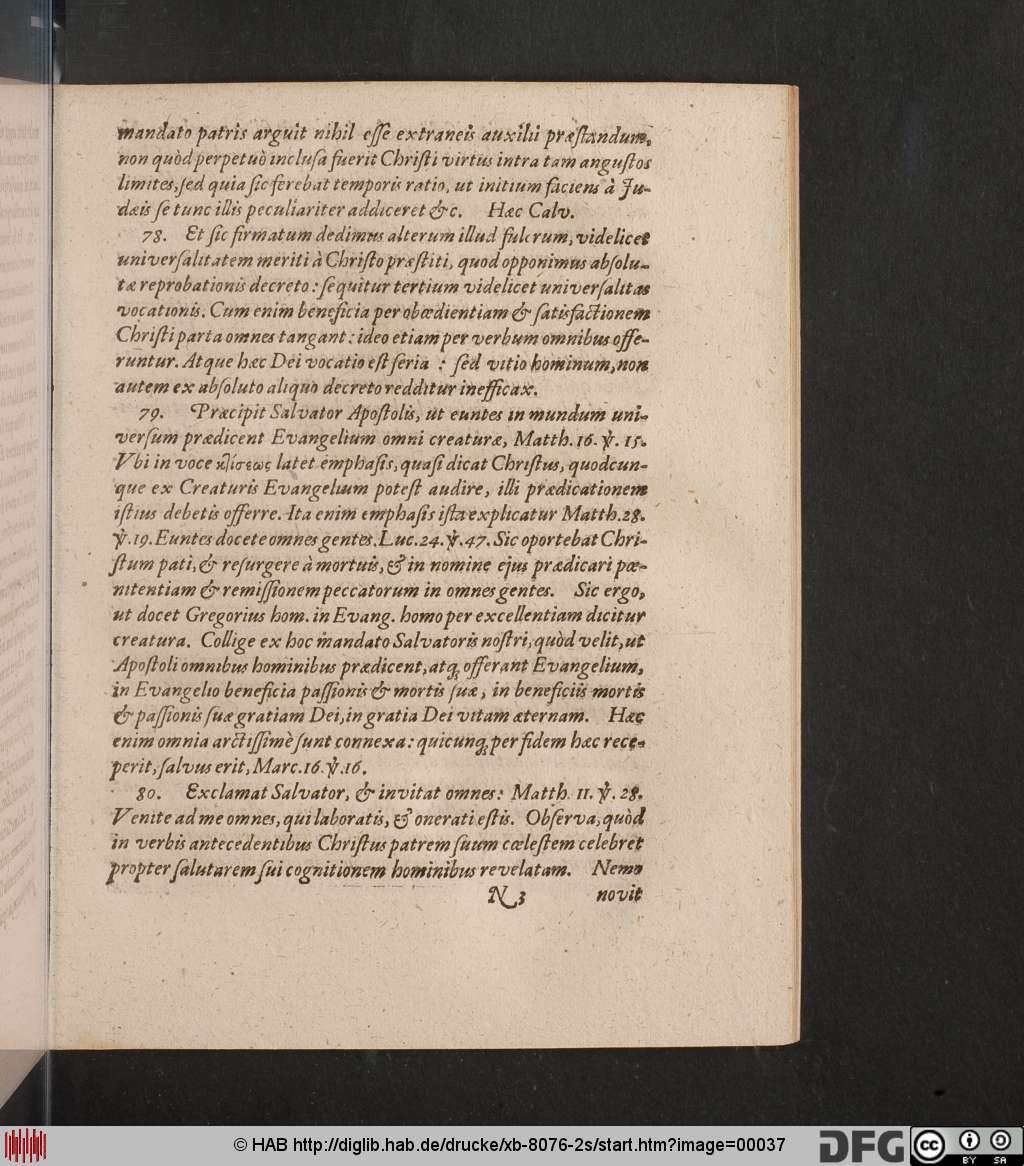 mandato patris arguit nihil eſſe extraneis auxilii præſtandum,
non quòd perpetuò incluſa fuerit Chriſti virtus intra tam anguſtos
limites, ſed quia ſic ferebat temporis ratio, ut initium faciens à Ju-
dæis ſe tunc illis peculiariter addiceret &c. Hæc Calv.
78. Et ſic firmatum dedimus alterum illud fulcrum, videlicet
univerſalitatem meriti à Chriſto præſtiti, quod opponimus abſolu-
tæ reprobationis decreto: ſequitur tertium videlicet univerſalitas
vocationis. Cum enim beneficia per obœdientiam & ſatisfactionem
Chriſti parta omnes tangant: ideo etiam per verbum omnibus offe-
runtur. Atque hæc Dei vocatio eſt ſeria : ſed vitio hominum, non
autem ex abſoluto aliquo decreto redditur inefficax.
79. Præcipit Salvator Apoſtolis, ut euntes in mundum uni-
verſum prædicent Evangelium omni creaturæ, Matth. 16. ℣. 15.
Vbi in voce κλίσεως latet emphaſis, quaſi dicat Chriſtus, quodcun-
que ex Creaturis Evangelium poteſt audire, illi prædicationem
iſtius debetis offerre. Ita enim emphaſis iſta explicatur Matth. 28.
℣. 19. Euntes docete omnes gentes. Luc. 24. ℣. 47. Sic oportebat Chri-
ſtum pati, & reſurgere à mortuis, & in nomine ejus prædicari pœ-
nitentiam & remiſſionem peccatorum in omnes gentes. Sic ergo,
ut docet Gregorius hom. in Evang. homo per excellentiam dicitur
creatura. Collige ex hoc mandato Salvatoris noſtri, quòd velit, ut
Apoſtoli omnibus hominibus prædicent, atq; offerant Evangelium,
in Evangelio beneficia paſſionis & mortis ſuæ, in beneficiis mortis
& paſſionis ſuæ gratiam Dei, in gratia Dei vitam æternam. Hæc
enim omnia arctiſſimè ſunt connexa: quicunq; per fidem hæc rece-
perit, ſalvus erit, Marc. 16. ℣. 16.
80. Exclamat Salvator, & invitat omnes: Matth. 11. ℣. 28.
Venite ad me omnes, qui laboratis, & onerati eſtis. Obſerva, quòd
in verbis antecedentibus Chriſtus patrem ſuum cœleſtem celebret
propter ſalutarem ſui cognitionem hominibus revelatam. Nemo
N 3 novit
© HAB http://diglib.hab.de/drucke/xb-8076-2s/start.htm?image=00037
DFG
cc BY SA